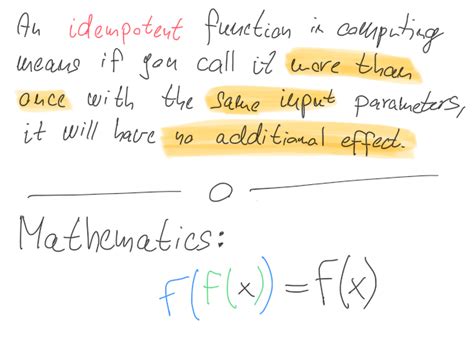 An idempotent function in computing
means if you call it more than
once with the same input parameters,
it will have no additional effect.
Mathematics:
f(f(x)) = f(x)